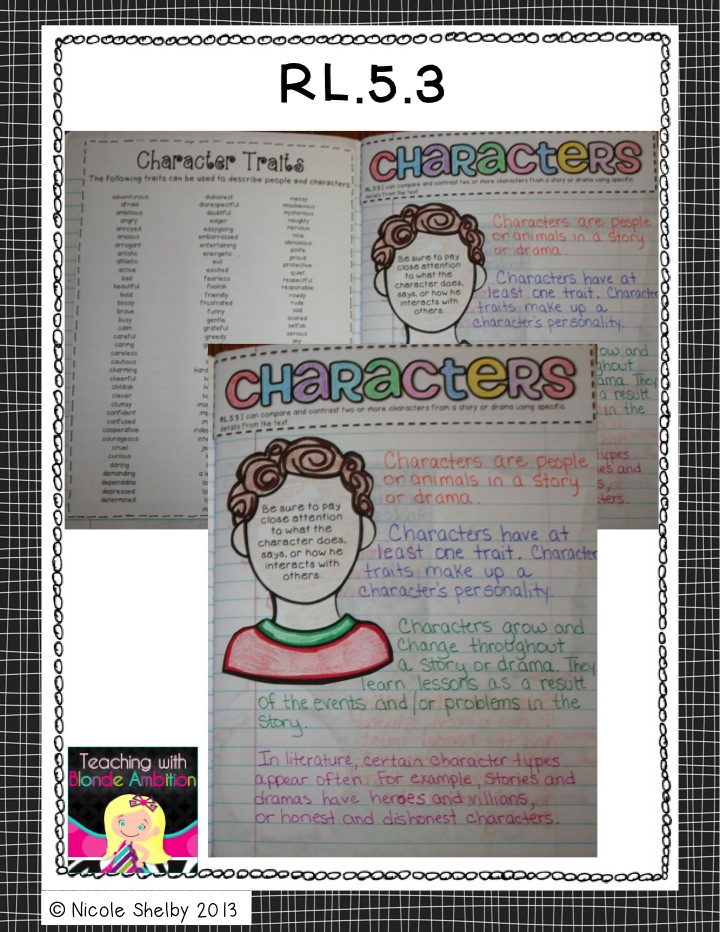 RL.5.3
Character Traits
The following traits can be used to describe people and characters.
adventurous
afraid
ambitious
angry
annoyed
anxious
arrogant
artistic
athletic
active
bad
beautiful
bold
bossy
brave
busy
calm
careful
caring
careless
cautious
charming
cheerful
childish
clever
clumsy
confident
confused
cooperative
courageous
cruel
curious
daring
demanding
dependable
depressed
determined
dishonest
disrespectful
doubtful
eager
easygoing
embarrassed
entertaining
energetic
evil
excited
fearless
foolish
friendly
frustrated
funny
gentle
grateful
greedy
messy
mischievous
mysterious
naughty
nervous
nice
obnoxious
polite
proud
protective
quiet
respectful
responsible
rowdy
rude
sad
scared
selfish
serious
sky
CHARACTERS
RL.5.3 I can compare and contrast two or more characters from a story or drama using specific
details from the text.
Be sure to pay
close attention
to what the
character does,
says, or how he
interacts with
others.
Characters are people
or animals in a story
or drama.
Characters have at
least one trait. Character
traits make up a
character's personality.
CHARACTERS
RL.5.3 I can compare and contrast two or more characters from a story or drama using specific
details from the text.
Be sure to pay
close attention
to what the
character does,
says, or how he
interacts with
others.
Characters are people
or animals in a story
or drama.
Characters have at
least one trait. Character
traits make up a
character's personality.
Characters grow and
change throughout
a story or drama. They
learn lessons as a result
of the events and/or problems in the
story.
In literature, certain character types
appear often. For example, stories and
dramas have heroes and villians,
or honest and dishonest characters.
Teaching with
Blonde Ambition
© Nicole Shelby 2013